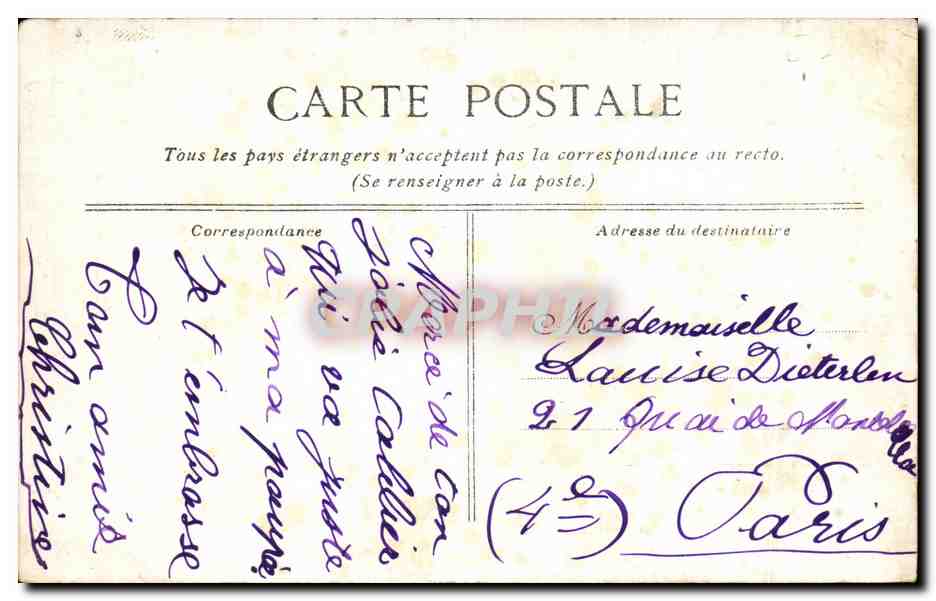 CARTE POSTALE
Tous les pays étrangers n'acceptent pas la correspondance au recto.
(Se renseigner à la poste.)
Correspondance
Merce de ton
Joli Collier
Qui va juste
à ma poupé
Je t'embrasse
Ton amis
Christine
Adresse du destinataire
Mademoiselle
Louise Dieterlen
21 Quai de
(4e) Paris